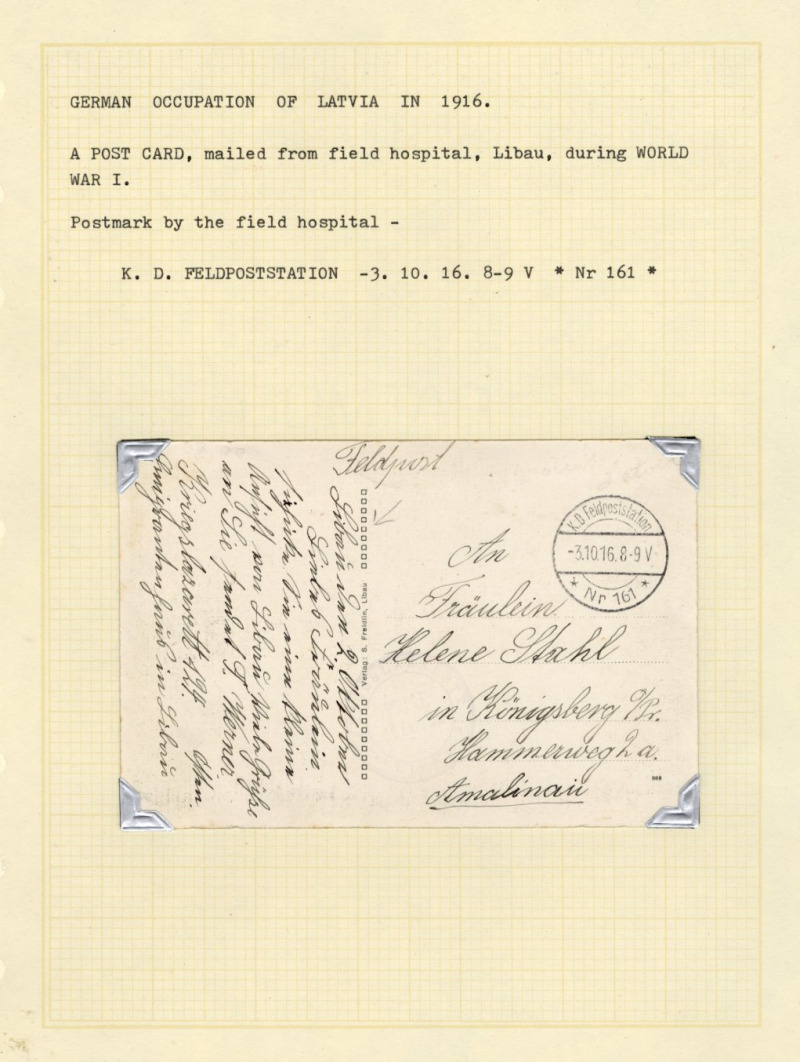 GERMAN OCCUPATION OF LATVIA IN 1916.
A POST CARD, mailed from field hospital, Libau, during WORLD
WAR I.
Postmark by the field hospital -
K. D. FELDPOSTSTATION -3. 10. 16. 8-9 V * Nr 161 *
Feldpost
K.D. Feldpoststation
-3.10.16. 8-9 V
* Nr 161 *
An
Fräulein
Helene Stahl
in Königsberg i/Pr.
Hammerweg 2 a.
Amalinau
Verlag: S. Freidlin, Libau
Libau den 2. Oktober
Liebes Fräulein
Ansicht von Libau Viele Grüße
an Sie sendet F. Werner
Kriegslazarett 124
Emigrantenhaus in Libau